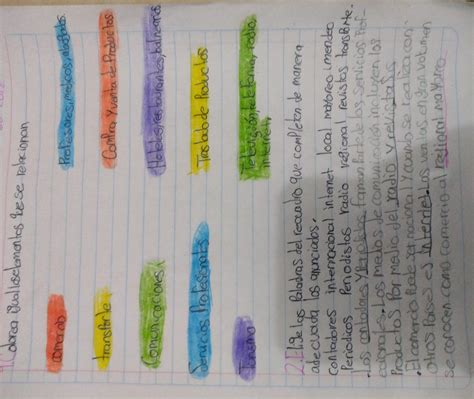 Colorea igual los elementos que se relacionan
comercio Profesores, medicos, abogados
transporte Compra y venta de Productos
Comunicaciones Hoteles, restaurantes, balnearios
Servicios Profesionales Traslado de Productos
Turismo Televisión, telefonia, radio,
internet
2. Elige las Palabras del recuadro que completen de manera
adecuada los enunciados.
contadores internacional internet local mayoreo menudeo
Periodicos Periodistas radio regional revistas transporte.
• Los contadores y forman Parte de los servicios Prof-
Los medios de comunicación incluyen los
Productos Por medio del radio y revistas
• El comercio Puede ser nacional y cuando se realiza con
otros Paises es internet. Las ventas en gran volumen
se conocen como comercio al regional mayoreo